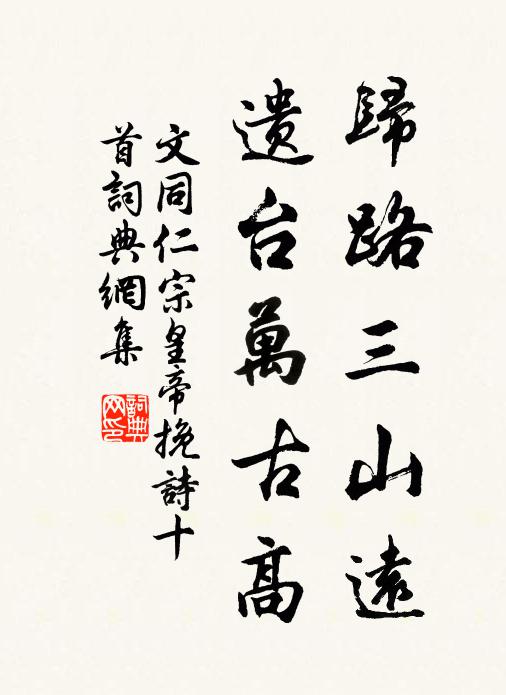 歸路三山遠
遗台萬古高
文同仁宗皇帝挽詩十
首詞典網集
詞典
网印